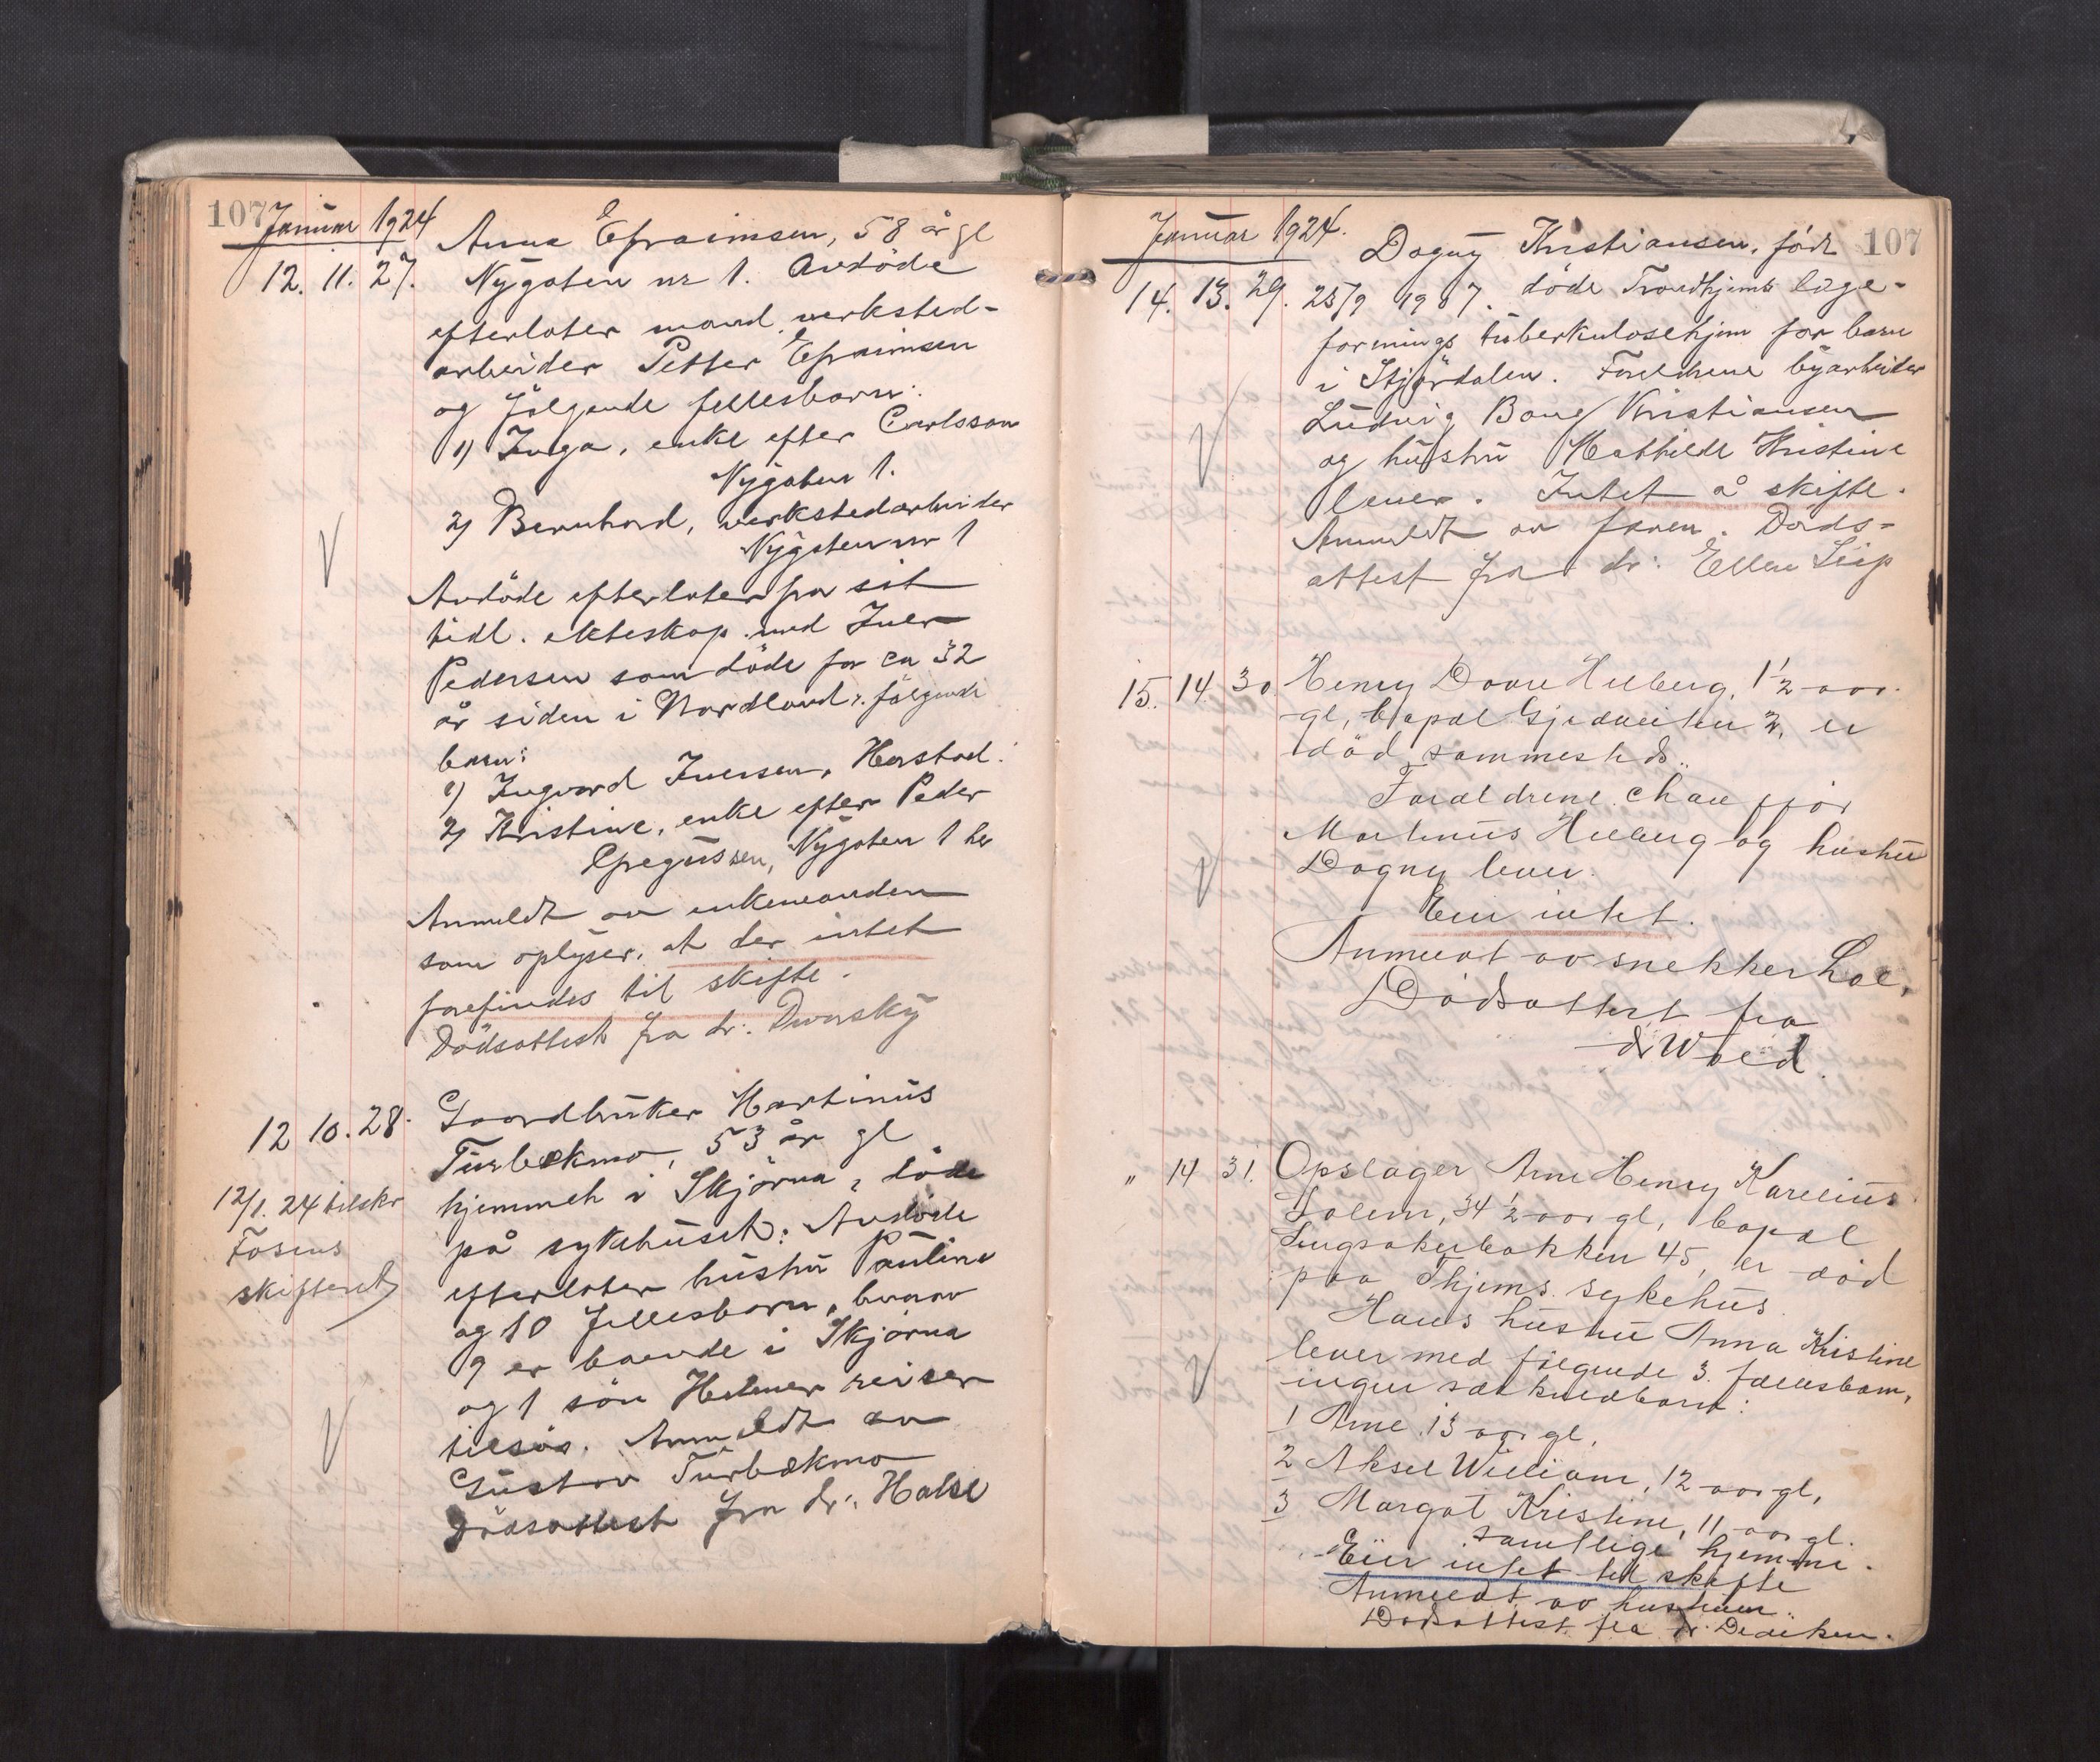 107 Januar 1924
Anna Efraimsen, 58 år gl
12. 11. 27. Nygaten nr 1. Avdöde
efterlater mand, verksted-
arbeider Petter Efraimsen
og fölgende fellesbarn:
1) Inga, enke efter Carlsson
Nygaten 1.
2) Bernhard, verkstedarbeider
Nygaten nr 1
Avdöde efterlater fra sit
tidl. ekteskap med Iver
Pedersen som döde for ca 32
år siden i Nordland, fölgende
barn:
1) Ingvard Iversen, Harstad.
2) Kristine, enke efter Peder
Gregussen, Nygaten 1 her
Anmeldt av enkemanden
som oplyser, at der intet
forefindes til skifte.
Dödsattest fra dr:
12 10. 28. Gaardbruker Martinus
Turbekmo, 53 år gl
hjemmeh i Skjörna, döde
12/1. 24 tilskr
på sykehuset. Avdöde
Fosens
efterlater hustru Pauline
skifteret
og 10 fellesbarn, hvorav
9 er boende i Skjörna
og 1 sön Helmer reiser
tilsös. Anmeldt av
Gustav Turbekmo
Dödsattest fra dr: Halse
Januar 1924.
107
Dagny Kristiansen, födt
14. 13. 29. 25/9 1907. döde Trondhjems læge-
forenings tuberkulosehjem for barn
i Stjördalen. Foreldrene byarbeider
Ludvig Kristiansen
og hustru Mathilde Kristine
lever. Intet å skifte.
Anmeldt av faren. Döds-
attest fra dr: Ellen
15. 14. 30. Henry Hilberg, 1 1/2 aar
gl, bopæl 2, er
död sammesteds.
Forældrene chaufför
Martinus Hilberg og hustru
Dagny lever.
Eier intet.
Anmeldt av snekker Loe,
Dödsattest fra
dr Wold.
" 14 31. Opslager Arne Henry Karelius
Solem, 34 1/2 aar gl, bopæl
45, er död
paa Thjems sykehus.
Hans hustru Anna Kristine
lever med fölgende 3 fællesbarn,
ingen særkuldbarn:
1 Arne 13 aar gl,
2 Aksel William, 12 aar gl,
3 Margot Kristine, 11 aar gl.
samtlige hjemme.
Eier intet til skifte
Anmeldt av hustruen.
Dödsattest fra dr. Dedichen.